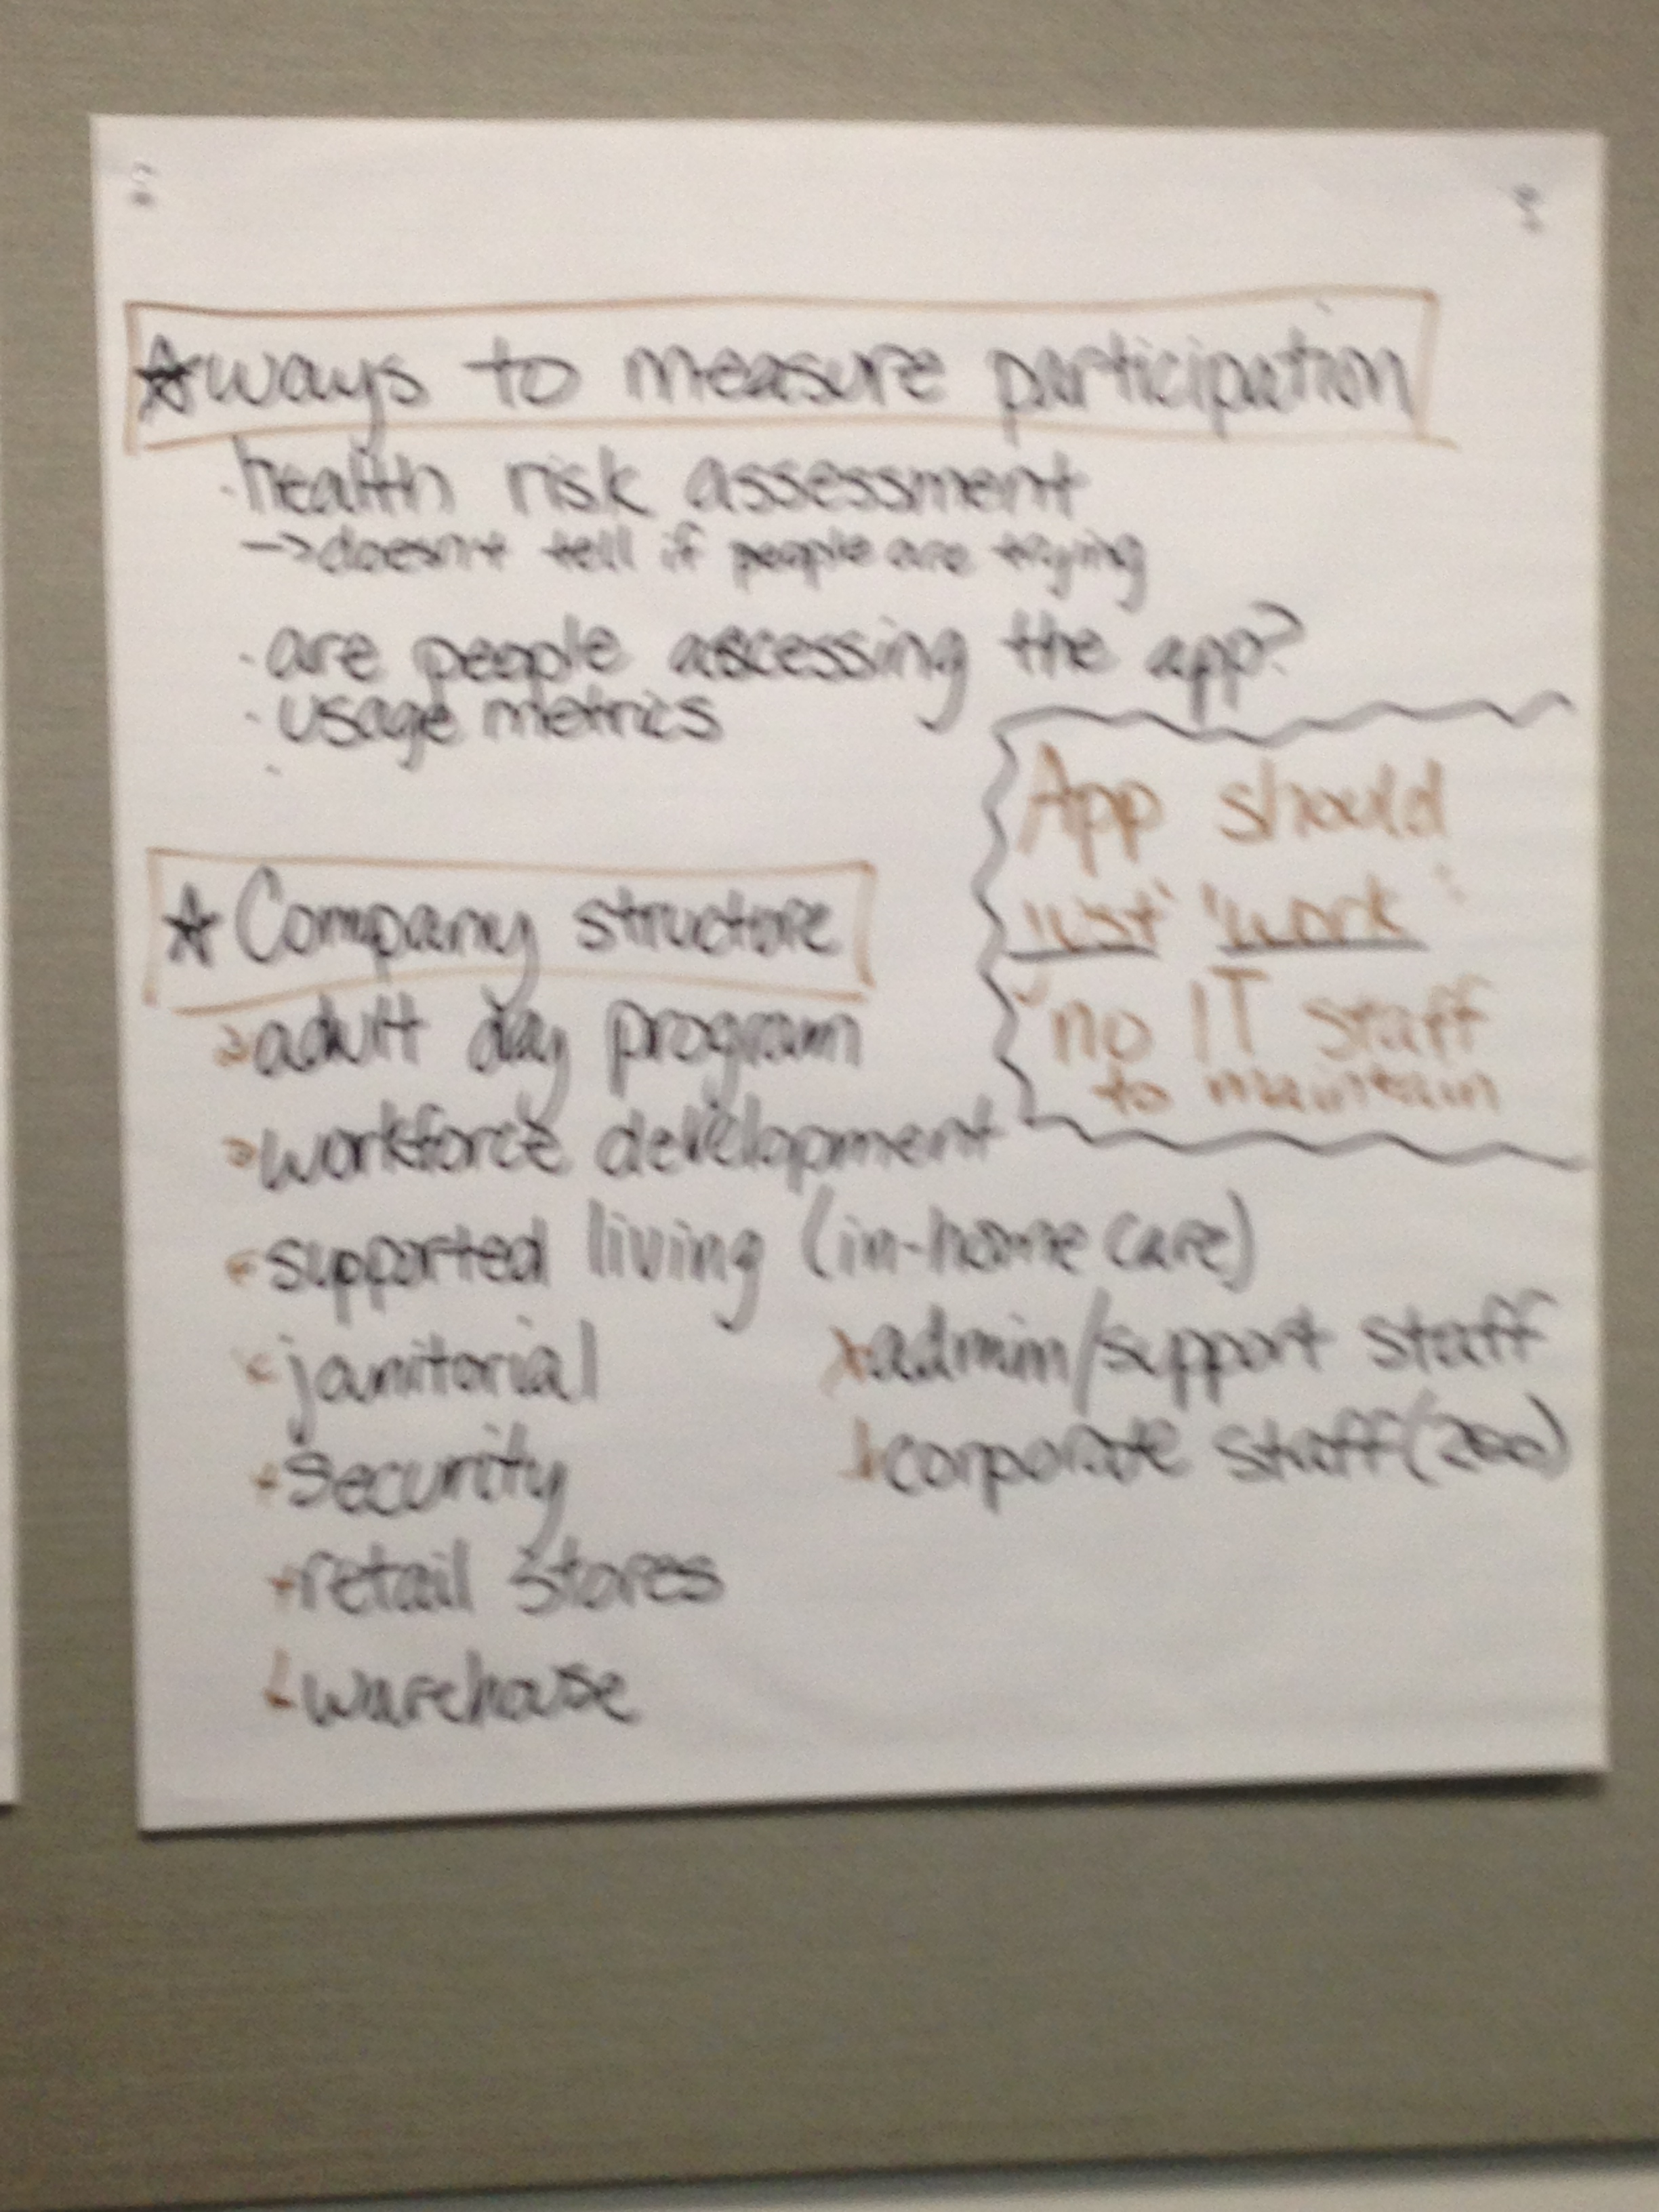 ☆ways to measure participation
·health risk assessment
→doesn't tell if people are trying
·are people accessing the app?
·usage metrics
·
App should
just "work"
no IT staff
to maintain
☆Company structure
adult day program
workforce development
supported living (in-home care)
janitorial
security
retail stores
warehouse
admin/support staff
corporate staff (200)